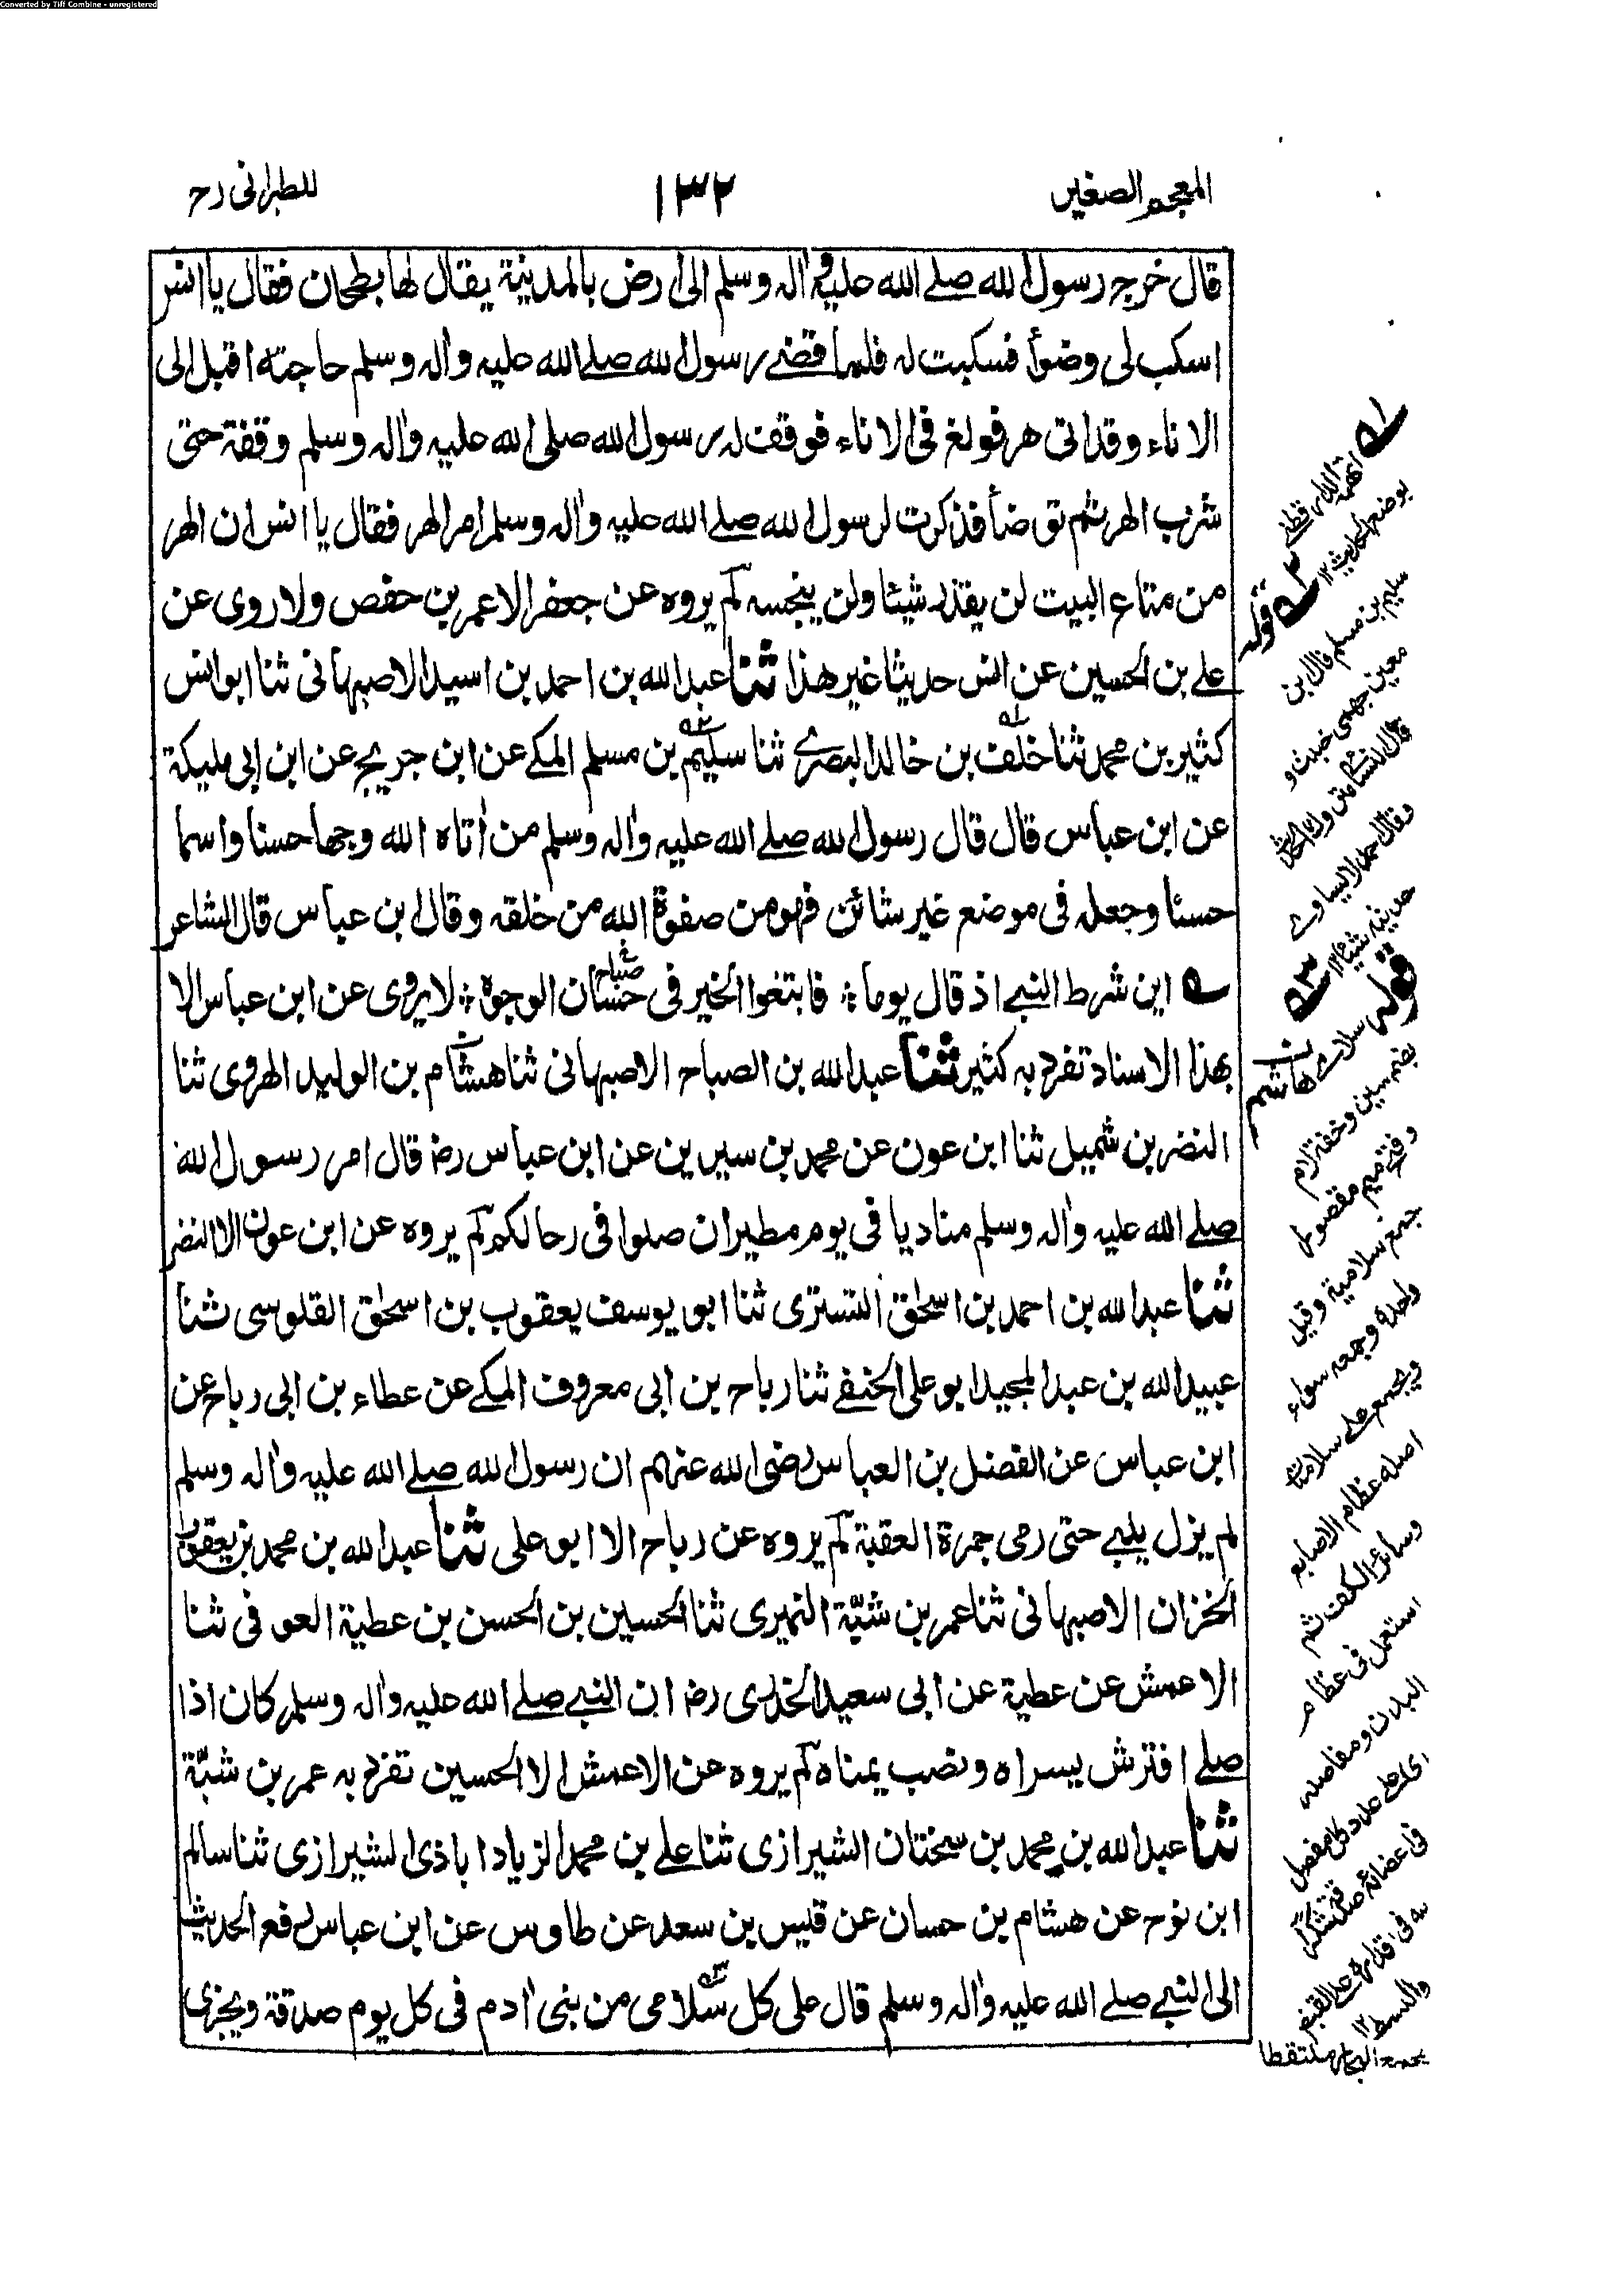 Converted by Tiff Combine - unregistered
المعجم الصغير ١٣٢ للطبرانی رح
قال خرج رسول الله صلے الله علیه واٰله وسلم الی ارض بالمدینة یقال لها بطحان فقال یا انس
اسکب لی وضوأ فسکبت له فلما قضے رسول الله صلے الله علیه واٰله وسلم حاجته اقبل الی
الاناء وقد اتی هر فولغ فی الاناء فوقف له رسول الله صلی الله علیه واٰله وسلم وقفة حتی
شرب الهر ثم توضأ فذکرت لرسول الله صلے الله علیه واٰله وسلم امر الهر فقال یا انس ان الهر
من متاع البیت لن یقذر شیئا ولن ینجسه لم یروه عن جعفر الا عمر بن حفص ولا روی عن
علے بن الحسین عن انس حدیثا غیر هذا ثنا عبد الله بن احمد بن اسید الاصبهانی ثنا ابو انس
کثیر بن محمد ثنا خلف بن خالد البصرے ثنا سلیم بن مسلم المکے عن ابن جریج عن ابن ابی ملیکة
عن ابن عباس قال قال رسول الله صلے الله علیه واٰله وسلم من اٰتاه الله وجها حسنا واسما
حسنا وجعله فی موضع غیر شائن فهو من صفوة الله من خلقه وقال ابن عباس قال الشاعر
این شرط النبے اذ قال یوما ؛ فابتغوا الخیر فی حسان الوجوه ؛ لا یروی عن ابن عباس الا
صباح
بهذا الاسناد تفرد به کثیر ثنا عبد الله بن الصباح الاصبهانی ثنا هشام بن الولید الهروی ثنا
النضر بن شمیل ثنا ابن عون عن محمد بن سیرین عن ابن عباس رض قال امر رسول الله
صلے الله علیه واٰله وسلم منادیا فی یوم مطیر ان صلوا فی رحالکم لم یروه عن ابن عون الا النضر
ثنا عبد الله بن احمد بن اسحٰق التستری ثنا ابو یوسف یعقوب بن اسحٰق القلوسی ثنا
عبید الله بن عبد المجید ابو علی الحنفے ثنا رباح بن ابی معروف المکے عن عطاء بن ابی رباح عن
ابن عباس عن الفضل بن العباس رضی الله عنهم ان رسول الله صلے الله علیه واٰله وسلم
لم یزل یلبے حتی رمی جمرة العقبة لم یروه عن رباح الا ابو علی ثنا عبد الله بن محمد بن یعقوب
الخزان الاصبهانی ثنا عمر بن شبّة النمیری ثنا الحسین بن الحسن بن عطیة العوفی ثنا
الاعمش عن عطیة عن ابی سعید الخدری رض ان النبے صلے الله علیه واٰله وسلم کان اذا
صلے افترش یسراه ونصب یمناه لم یروه عن الاعمش الا الحسین تفرد به عمر بن شبّة
ثنا عبد الله بن محمد بن سختان الشیرازی ثنا علے بن محمد الزیادا باذی الشیرازی ثنا سالم
ابن نوح عن هشام بن حسان عن قیس بن سعد عن طاوس عن ابن عباس رفع الحدیث
الی النبے صلے الله علیه واٰله وسلم قال علی کل سلامی من بنی اٰدم فی کل یوم صدقة ویجزی
بوضع الحدیث ١٢
قوله
سلیم بن مسلم قال ابن
معین جهمی خبیث و
قال النسائی متروک الحدیث
حدیثه شیئا ١٢
قوله سلامے
هاشم
بضم سین وخفة لام
وفتح میم مقصور
جمع سلامیة وقیل
واحده وجمعه سواء
ویجمع علے سلامیات
اصله عظام الاصابع
وسائر الکف ثم
استعمل فی عظام
البدن ومفاصله
ای علے عدد کل مفصل
فی اعضائه صدقة شکر
لله فی اقداره علے القبض
والبسط ١٢
مجمع البحار ملتقطا